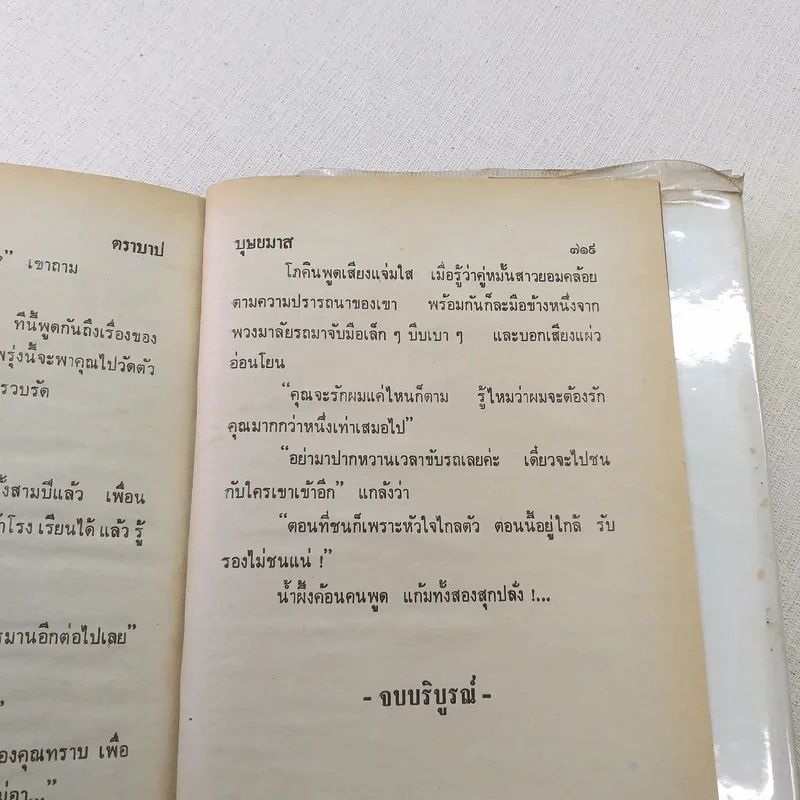 ตราบาป
?” เขาถาม
ที่นี้พูดกันถึงเรื่องของ
พรุ่งนี้จะพาคุณไปวัดตัว
รวบรัด
สามปีแล้ว เพื่อน
โรง เรียนได้ แล้ว รู้
รมานอีกต่อไปเลย”
”
องคุณทราบ เพื่อ
บุษยมาส
๗๑๙
โภคินพูดเสียงแจ่มใส เมื่อรู้ว่าคู่หมั้นสาวยอมคล้อย
ตามความปรารถนาของเขา พร้อมกันก็ละมือข้างหนึ่งจาก
พวงมาลัยรถมาจับมือเล็ก ๆ บีบเบา ๆ และบอกเสียงแผ่ว
อ่อนโยน
“คุณจะรักผมแค่ไหนก็ตาม รู้ไหมว่าผมจะต้องรัก
คุณมากกว่าหนึ่งเท่าเสมอไป”
“อย่ามาปากหวานเวลาขับรถเลยค่ะ เดี๋ยวจะไปชน
กับใครเขาเข้าอีก” แกล้งว่า
“ตอนที่ชนก็เพราะหัวใจไกลตัว ตอนนี้อยู่ใกล้ รับ
รองไม่ชนแน่ !”
น้ำผึ้งค้อนคนพูด แก้มทั้งสองสุกปลั่ง !...
- จบบริบูรณ์ -